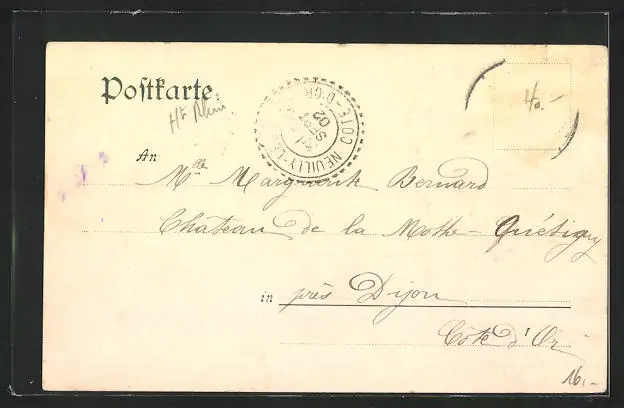 Postkarte
Ht Rhin
NEUILLY-LE
COTE-D'OR
SEPT
02
40.-
An
Mlle Marguerite Bernard
Château de la Mothe-Quétigny
in près Dijon
Côte d'Or
16,-